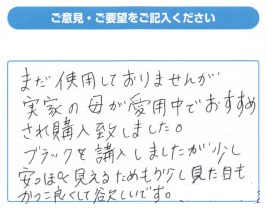 ご意見・ご要望をご記入ください
まだ使用しておりませんが
実家の母が愛用中でおすすめ
され購入致しました。
ブラックを購入しましたが少し
安っぽく見えるためもう少し見た目も
かっこ良くして欲しいです。